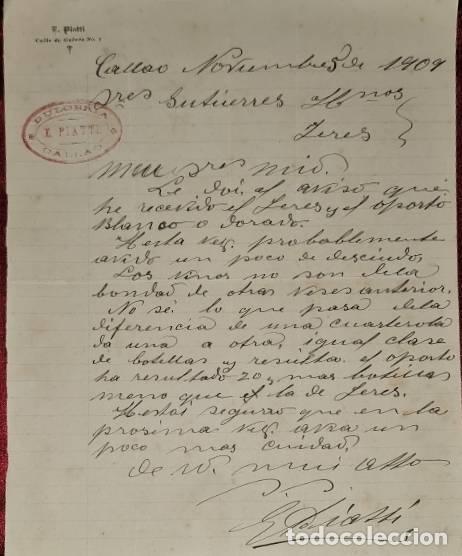 E. Piatti
Calle de Galvez No. 1
Callao Noviembre 5 de 1909
Sres Gutierres Hnos
Jeres
DULCERIA
E. PIATTI
CALLAO
Mui Sres mio.
Le doi el aviso que
he recevido el Jeres y el oporto
Blanco o dorado.
Hesta vez. probablemente
avido un poco de descuido,
Los vinos no son dela
bondad de otras veses anterior.
No sé. lo que pasa dela
diferencia de una cuarterola
da una a otra, igual clase
de botellas y resulta. el oporto
ha resultado 20 y mas botillas
meno que el la de Jeres.
Hestoi seguro que en la
prosima vez. avra un
poco mas cuidad.
de V. mui atto
E. Piatti
todocoleccion